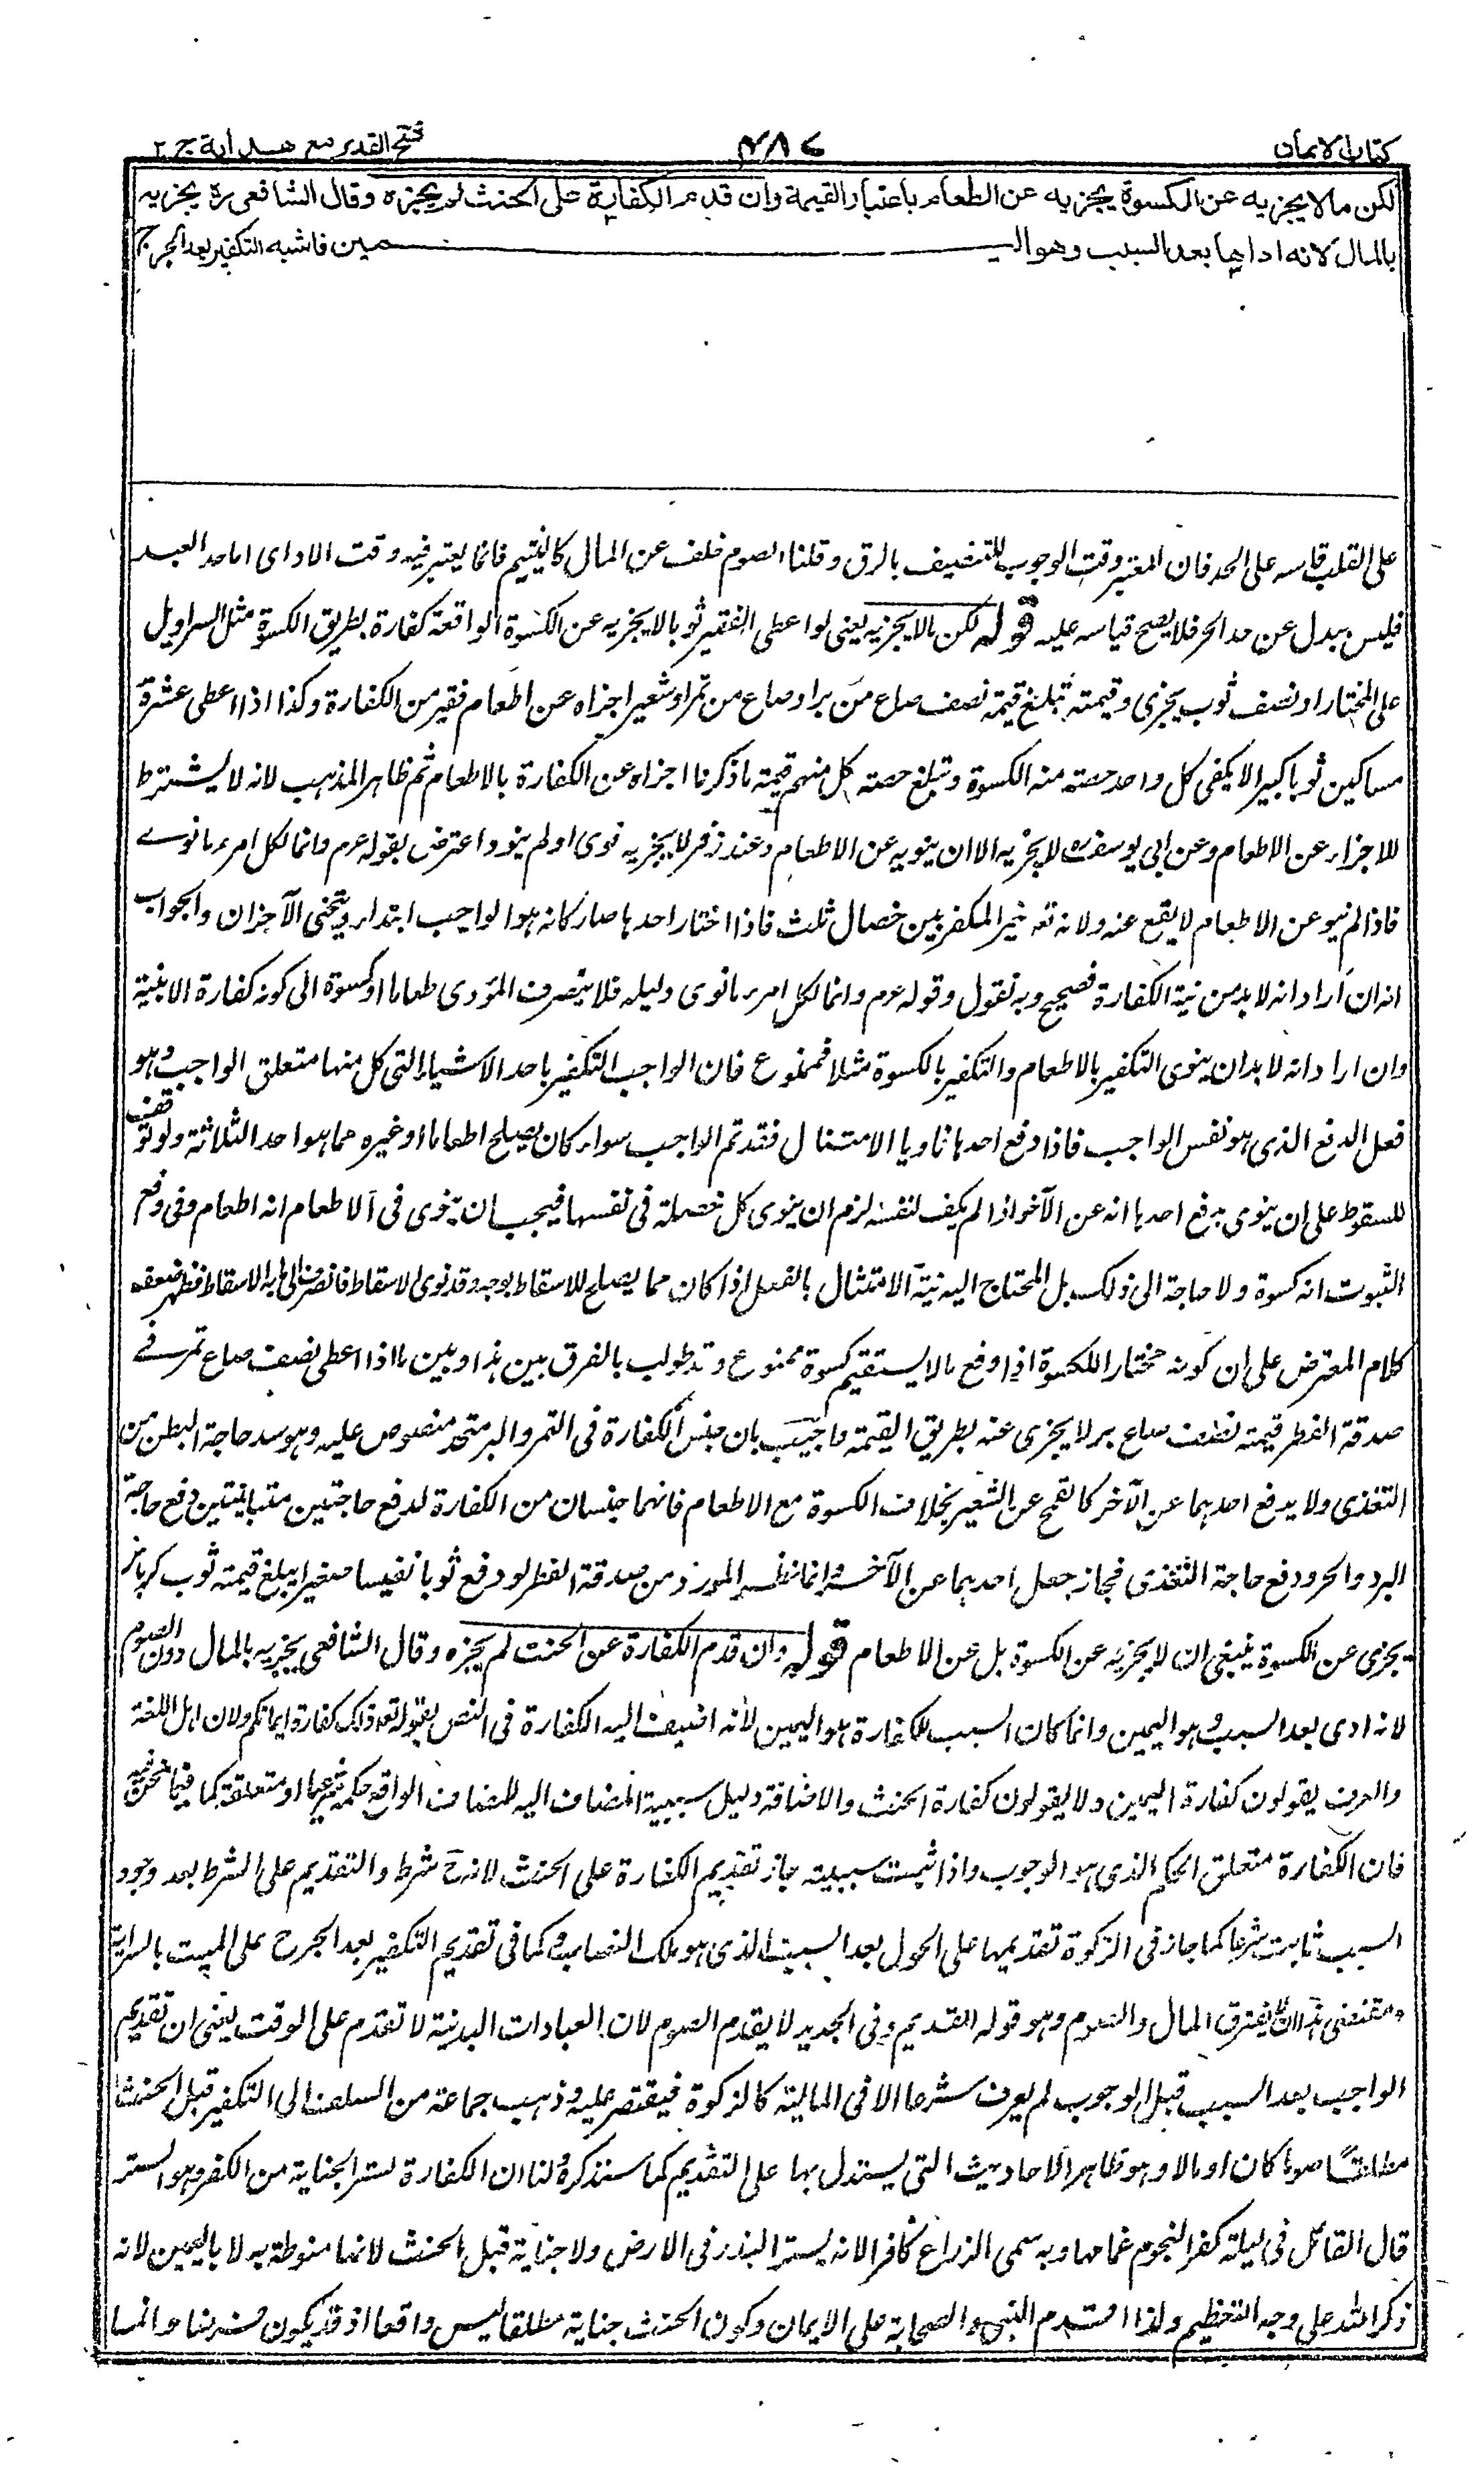 كتاب الايمان
٤٨٧
فتح القدير مع هداية ج ٢
لكن ما لا يجزيه عن الكسوة يجزيه عن الطعام باعتبار القيمة وان قدم الكفارة على الحنث لم يجزه وقال الشافعى رح يجزيه
بالمال لانه اداها بعد السبب وهو اليمين فاشبه التكفير بعد الجرح
على القلب قاسه على الحد فان المعتبر وقت الوجوب للتنصيف بالرق وقلنا الصوم خلف عن المال كالتيمم فانما يعتبر فيه وقت الاداى اما حد العبد
فليس ببدل عن حد الحر فلا يصح قياسه عليه قوله لكن ما لا يجزيه يعنى لو اعطى الفقير ثوبا لا يجزيه عن الكسوة الواقعة كفارة بطريق الكسوة مثل السراويل
على المختار او نصف ثوب يجزى وقيمته تبلغ قيمة نصف صاع من بر او صاع من تمر او شعير اجزاه عن اطعام فقير من الكفارة وكذا اذا اعطى عشرة
مساكين ثوبا كبيرا لا يكفى كل واحد حصته منه الكسوة وتبلغ حصة كل منهم قيمة ما ذكرنا اجزاه عن الكفارة بالاطعام ثم ظاهر المذهب لانه لا يشترط
للاجزاء عن الاطعام وعن ابى يوسف رح لا يجزيه الا ان ينويه عن الاطعام وعند زفر لا يجزيه نوى او لم ينو واعترض بقوله عرم وانما لكل امرء ما نوے
فاذا لم ينو عن الاطعام لا يقع عنه ولانه تعہ خير المكفر بين خصال ثلث فاذا اختار احدها صار كانه هو الواجب ابتداء وينتفى الآخران والجواب
انه ان اراد انه لا بد من نية الكفارة فصحيح وبه نقول وقوله عرم وانما لكل امرء ما نوى دليله فلا ينصرف المؤدى طعاما او كسوة الى كونه كفارة الا بنية
وان اراد انه لا بد ان ينوى التكفير بالاطعام والتكفير بالكسوة مثلا فممنوع فان الواجب التكفير باحد الاشياء التى كل منها متعلق الواجب وهو
فعل الدفع الذى هو نفس الواجب فاذا دفع احدها ناويا الامتثال فقد تم الواجب سواء كان يصلح اطعاما او غيره مما هو احد الثلاثة ولو توقف
للسقوط على ان ينوى بدفع احدها انه عن الآخر اذا لم يكف لنفسه لزم ان ينوى كل خصلة فى نفسها فيجب ان ينوى فى الاطعام انه اطعام وفى دفع
الثبوت انه كسوة ولا حاجة الى ذلك بل المحتاج اليه نية الامتثال بالفعل اذا كان مما يصلح للاسقاط بوجه وقد نوى الاسقاط فانصرف الى ما به الاسقاط فظهر ضعف
كلام المعترض على ان كونه مختارا للكسوة اذا دفع ما لا يستقيم كسوة ممنوع وقد طولب بالفرق بين هذا وبين ما اذا اعطى نصف صاع تمر فے
صدقة الفطر قيمته نصف صاع بر لا يجزى عنه بطريق القيمة واجيب بان جنس الكفارة فى التمر والبر متحد منصوص عليه وهو سد حاجة البطن من
التغذى ولا يدفع احدهما عن الآخر كالقمح عن الشعير بخلاف الكسوة مع الاطعام فانهما جنسان من الكفارة لدفع حاجتين متباينتين دفع حاجة
البرد والحر ودفع حاجة التغذى فجاز جعل احدهما عن الآخر وانما نظير المورد من صدقة الفطر لو دفع ثوبا نفيسا صغيرا يبلغ قيمته ثوب كرباس
يجزى عن الكسوة ينبغى ان لا يجزيه عن الكسوة بل عن الاطعام قوله وان قدم الكفارة عن الحنث لم يجزه وقال الشافعى يجزيه بالمال دون الصوم
لانه ادى بعد السبب وهو اليمين وانما كان السبب للكفارة هو اليمين لانه اضيف اليه الكفارة فى النص بقوله تعہ ذلك كفارة ايمانكم ولان اهل اللغة
والعرف يقولون كفارة اليمين ولا يقولون كفارة الحنث والاضافة دليل سببية المضاف اليه للمضاف الواقع حكما شرعيا او متعلقه كما فيما نحن فيه
فان الكفارة متعلق الحكم الذى هو الوجوب واذا ثبتت سببيته جاز تقديم الكفارة على الحنث لانه ح شرط والتقديم على الشرط بعد وجود
السبب ثابت شرعا كما جاز فى الزكوة تقديمها على الحول بعد السبب الذى هو ملك النصاب وكما فى تقديم التكفير بعد الجرح على الميت بالسراية
ومقتضى هذا ان لا يفترق المال والصوم وهو قوله القديم وفى الجديد لا يقدم الصوم لان العبادات البدنية لا تقدم على الوقت يعنى ان تقديم
الواجب بعد السبب قبل الوجوب لم يعرف شرعا الا فى المالية كالزكوة فيقتصر عليه وذهب جماعة من السلف الى التكفير قبل الحنث
مطلقا صوما كان او مالا وهو ظاهر الاحاديث التى يستدل بها على التقديم كما سنذكره ولنا ان الكفارة لستر الجناية من الكفر وهو الستر
قال القائل فى ليلة كفر النجوم غمامها وبه سمى الزراع كافرا لانه يستر البذر فى الارض ولا جناية قبل الحنث لانها منوطة به لا باليمين لانه
ذكر الله على وجه التعظيم ولذا اقدم النبى والصحابة على الايمان وكون الحنث جناية مطلقا ليس واقعا اذ قد يكون فرضا وانما